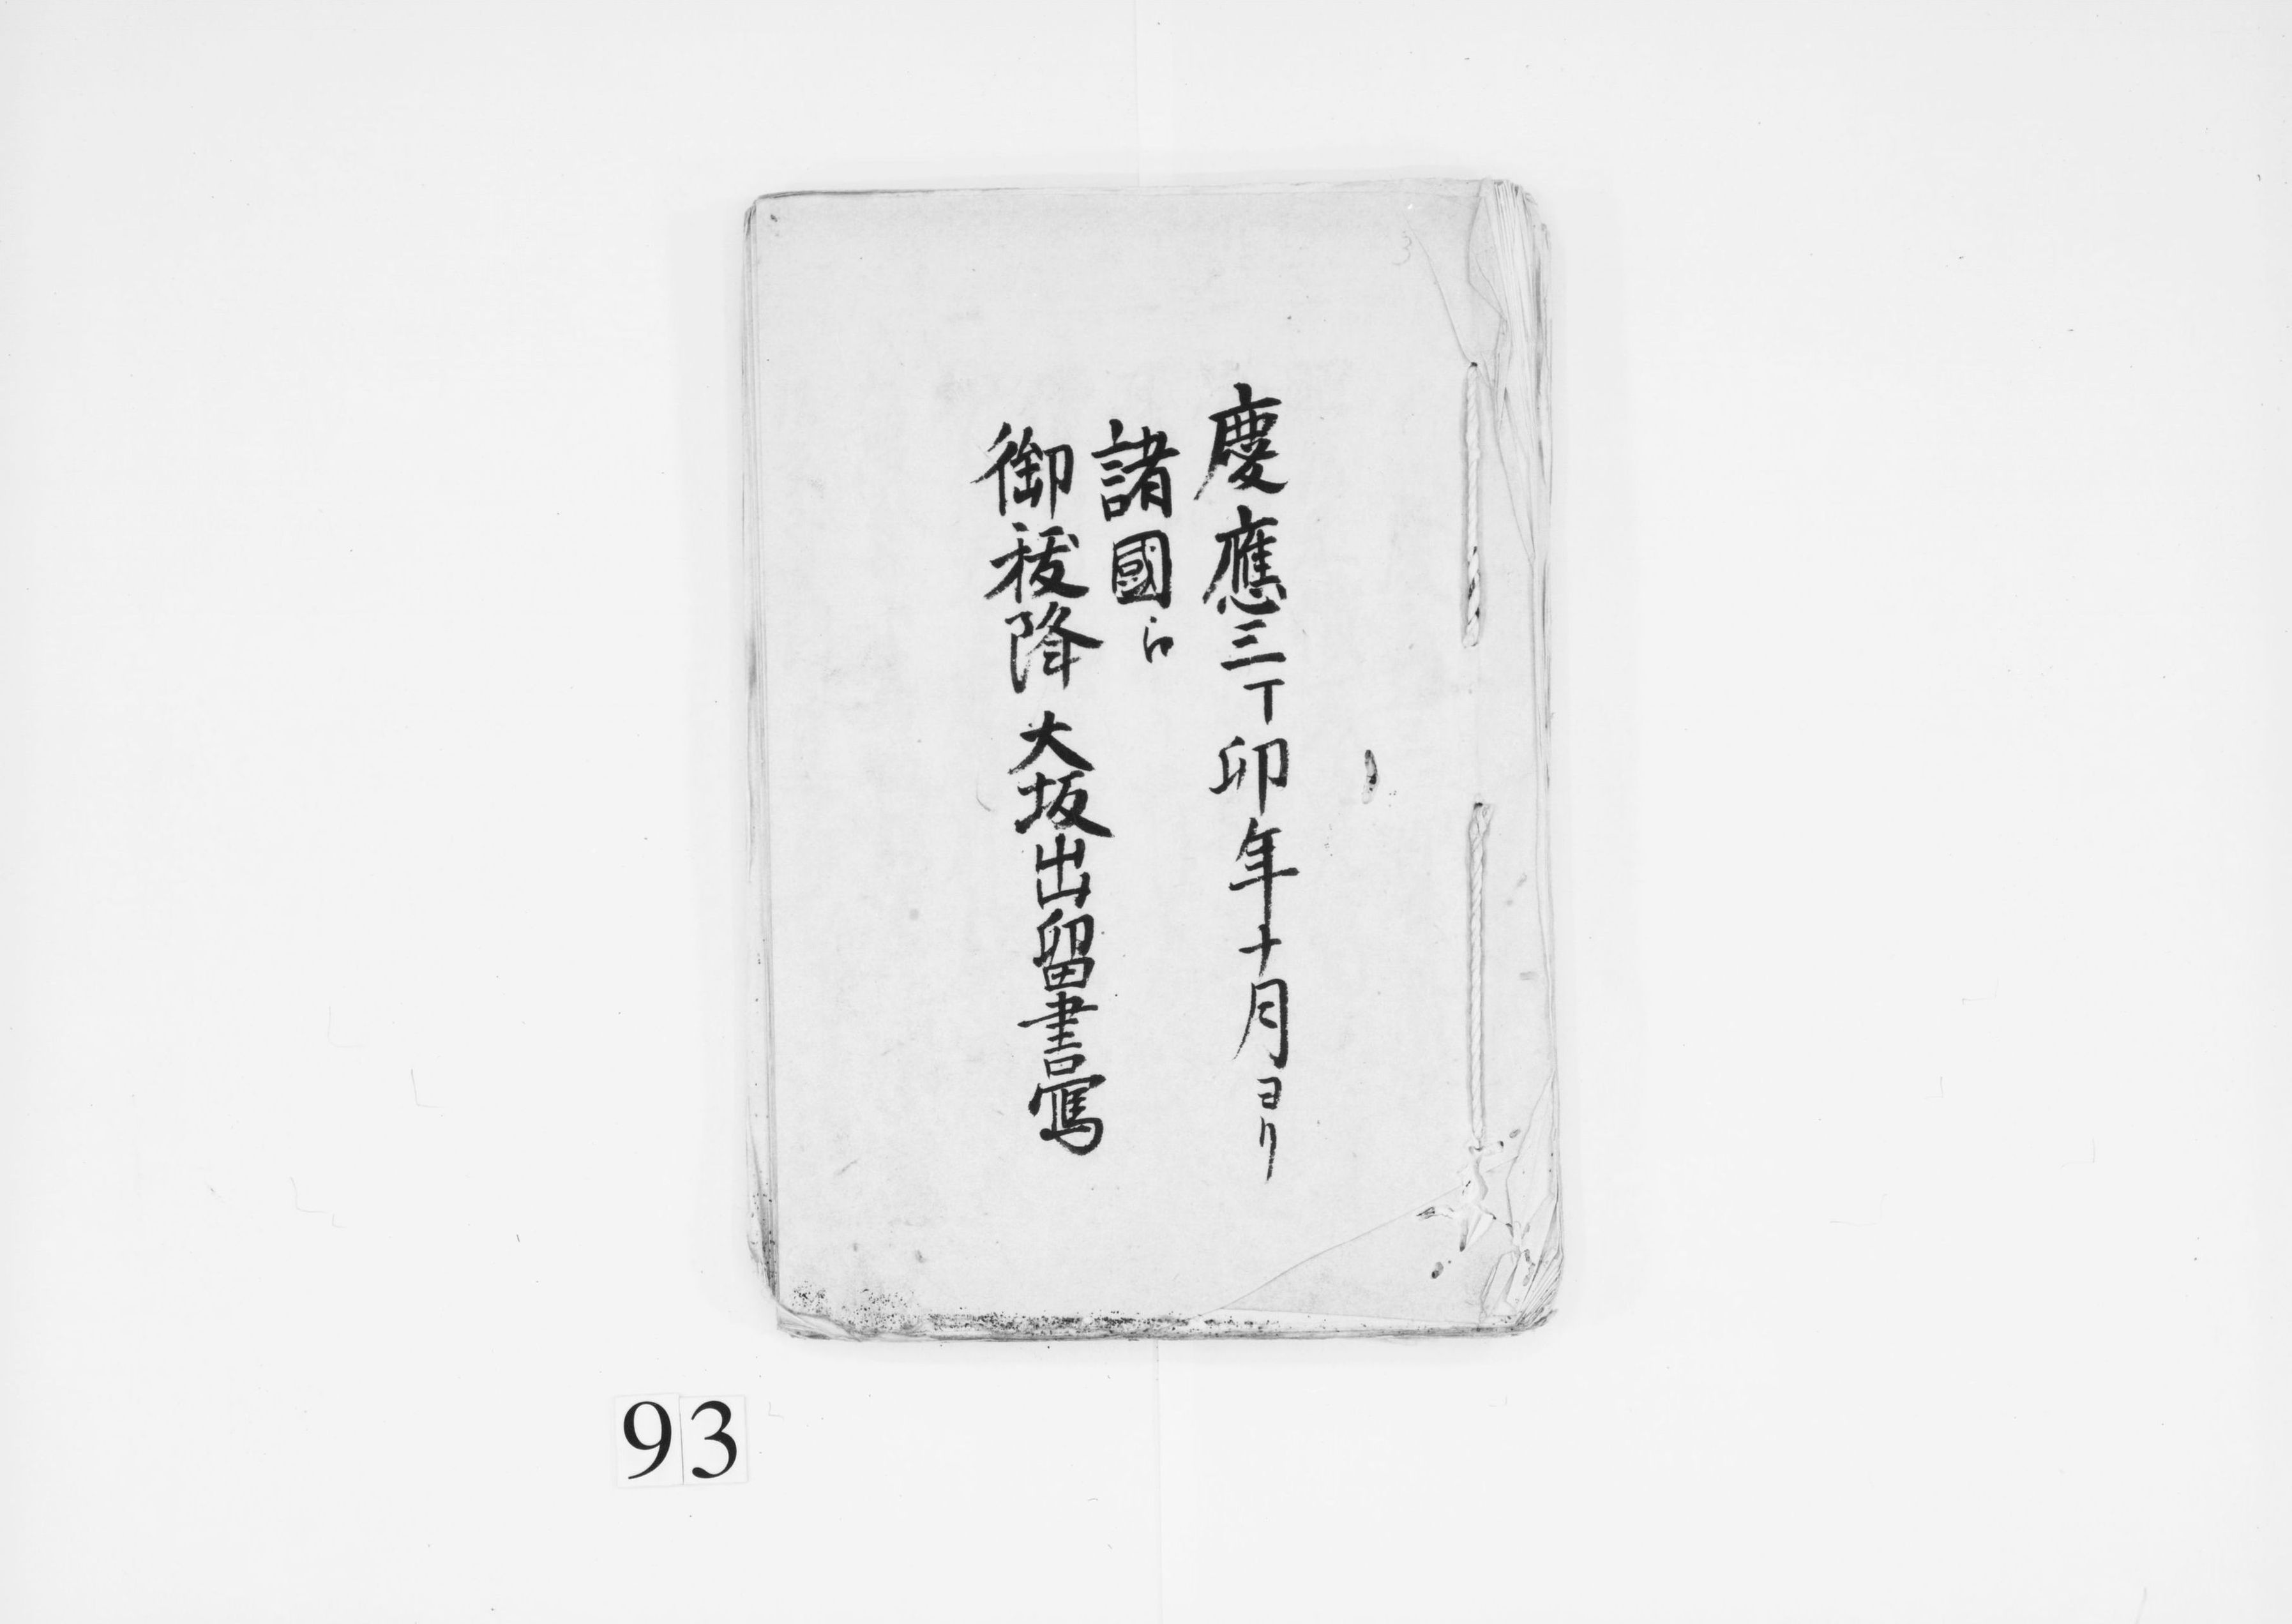 慶應三丁卯年十月ヨリ
諸國ゟ
御祓降大坂出留書寫
3
93